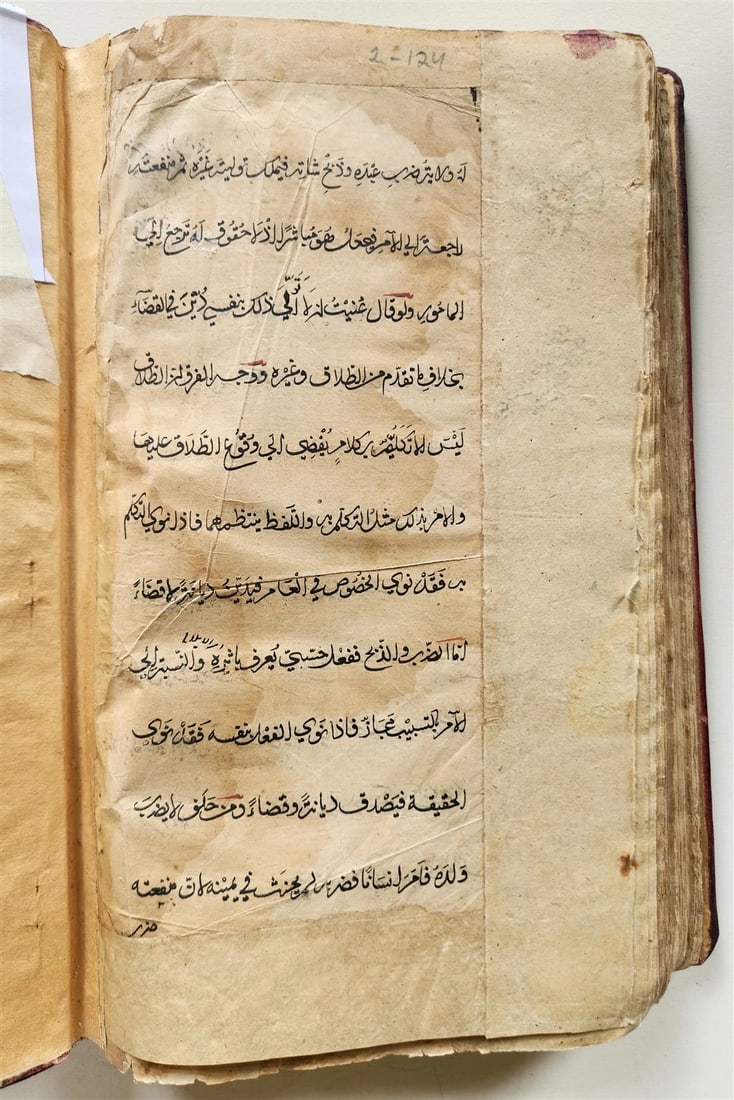 2-124
له ولاية ضرب عبده وذبح شاته فيملك توليته غيره ثم منفعته
راجعة الي الامر فيجعل هو مباشرا اذ لا حقوق له ترجع الي
المامور ولو قال عنيت ان لا اتولي ذلك بنفسي دين في القضاء
بخلاف ما تقدم من الطلاق وغيره ووجه الفرق ان الطلاق
ليس الا تكلم بكلام يفضي الي وقوع الطلاق عليها
والامر بذلك مثل التكلم به واللفظ ينتظمهما فاذا نوي التكلم
به فقد نوي الخصوص في العام فيدين ديانة لا قضاء
اما الضرب والذبح ففعل حسي يعرف باثره والنسبة الي
الامر بالتسبيب مجاز فاذا نوي الفعل بنفسه فقد نوي
الحقيقة فيصدق ديانة وقضاء ومن حلف لا يضرب
ولده فامر انسانا فضربه لم يحنث في يمينه لان منفعته
ضرب